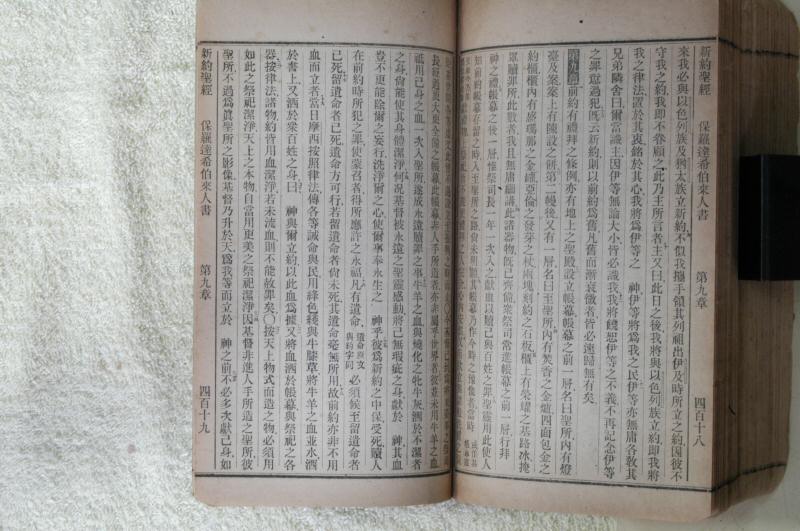 新約聖經　保羅達希伯來人書　第九章　四百十八
來我必與以色列族及猶太族立新約不似我攜手領其列祖出伊及時所立之約因彼不
守我之約我即不眷顧之此乃主所言者主又曰此日之後我將與以色列族立約即我將
我之律法置於其衷銘於其心我將爲伊等之　神伊等將爲我之民伊等亦無庸各敎其
兄弟隣舍曰爾當識主因伊等無論大小皆必識我我將饒恕伊等之不義不再記念伊等
之罪愆過犯既云新約則以前約爲舊凡舊而漸衰微者皆必速歸無有矣
第九章　前約有禮拜之條例亦有地上之聖殿設立帳幕帳幕之前一層名曰聖所內有燈
臺及案案上有陳設之餅第二幔後又有一層名曰至聖所內有焚香之金爐四面包金之
約櫃櫃內有盛瑪那之金罐亞倫之發芽之杖兩塊刻約之石板櫃上有榮耀之基路冰掩
眾贖罪所此數者我且無庸細講此諸器物既已齊備眾祭司常進帳幕之前一層行拜
神之禮帳幕之後一層惟祭司長一年一次入之獻血以贖己與百姓之罪聖靈用此使人
知前約帳幕存留之時入至聖所之路尚未明顯其帳幕乃作今時之預像者當時
祇用己身之血一次入聖所遂成永遠贖罪之事牛羊之血與燒化之牝牛灰灑於不潔者
之身倘能使其身體潔淨何况基督被永遠之聖靈感動將己無瑕疵之身獻於　神其血
豈不更能除爾之妄行洗淨爾之心使爾事奉永生之　神乎彼爲新約之中保受死贖人
在前約時所犯之罪使蒙召者得所應許之永福凡有遺命遺命原文與約字同必須候至留遺命者
已死留遺命者已死遺命方可行若留遺命者尚未死其遺命毫無所用故前約亦非不用
血而立者當日摩西按照律法傳各等誡命與民用絳色綫與牛膝草將牛羊之血並水洒
於書上又洒於眾百姓之身曰　神與爾立約以此血爲據又將血洒於帳幕與祭祀之各
器按律法諸物約皆用血潔淨若未流血則不能赦罪矣〇按天上物式而造之物必須用
如此之祭祀潔淨天上之本物自當用更美之祭祀潔淨因基督非進人手所造之聖所彼
聖所不過爲眞聖所之影像基督乃升於天爲我等而立於　神之前不必多次獻己身如
新約聖經　保羅達希伯來人書　第九章　四百十九